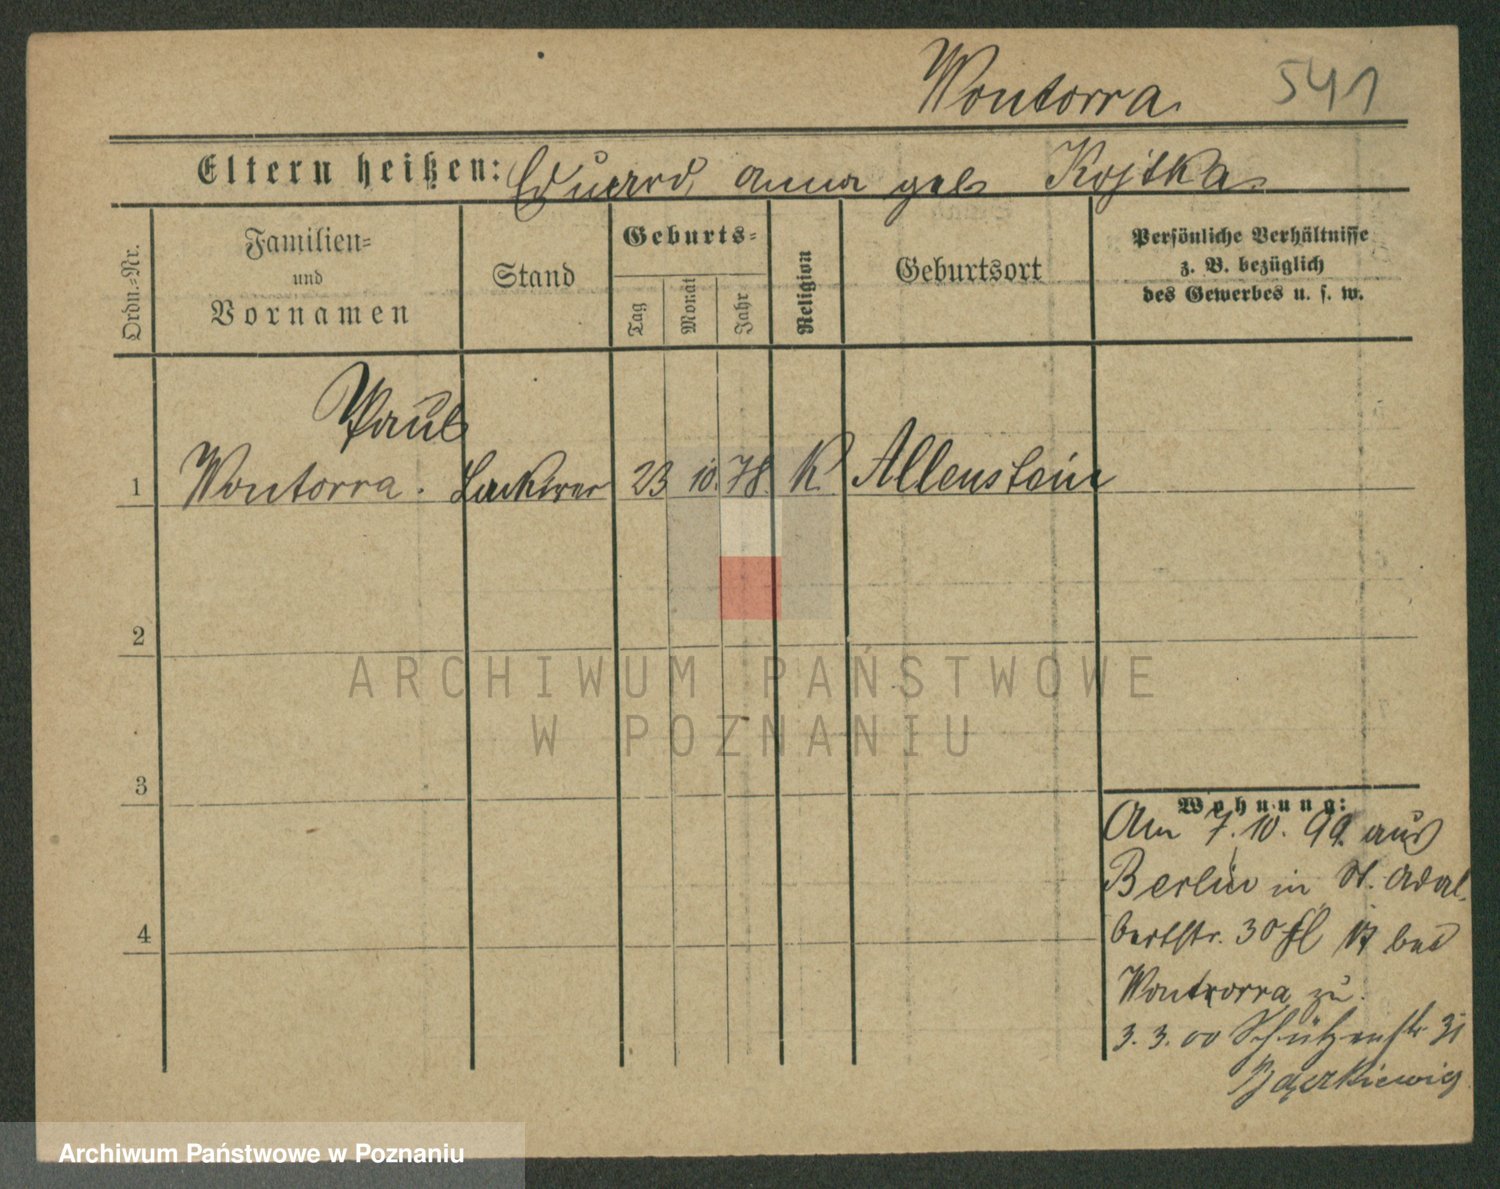 Wontorra.
541
Eltern heißen: Eduard, Anna geb. Kojtka.
Ordn.-Nr.
Familien-
und
Vornamen
Stand
Geburts-
Tag
Monat
Jahr
Religion
Geburtsort
Persönliche Verhältnisse
z. B. bezüglich
des Gewerbes u. s. w.
Paul
1 Wontorra. Lackirer 23 10. 78. K. Allenstein
2
3
4
Wohnung:
Am 7. 10. 99. aus
Berlin in St. Adal-
bertstr. 30 bei
Wontrorra zu.
3. 3. 00 Schützenstr 31
ARCHIWUM PAŃSTWOWE
W POZNANIU
Archiwum Państwowe w Poznaniu